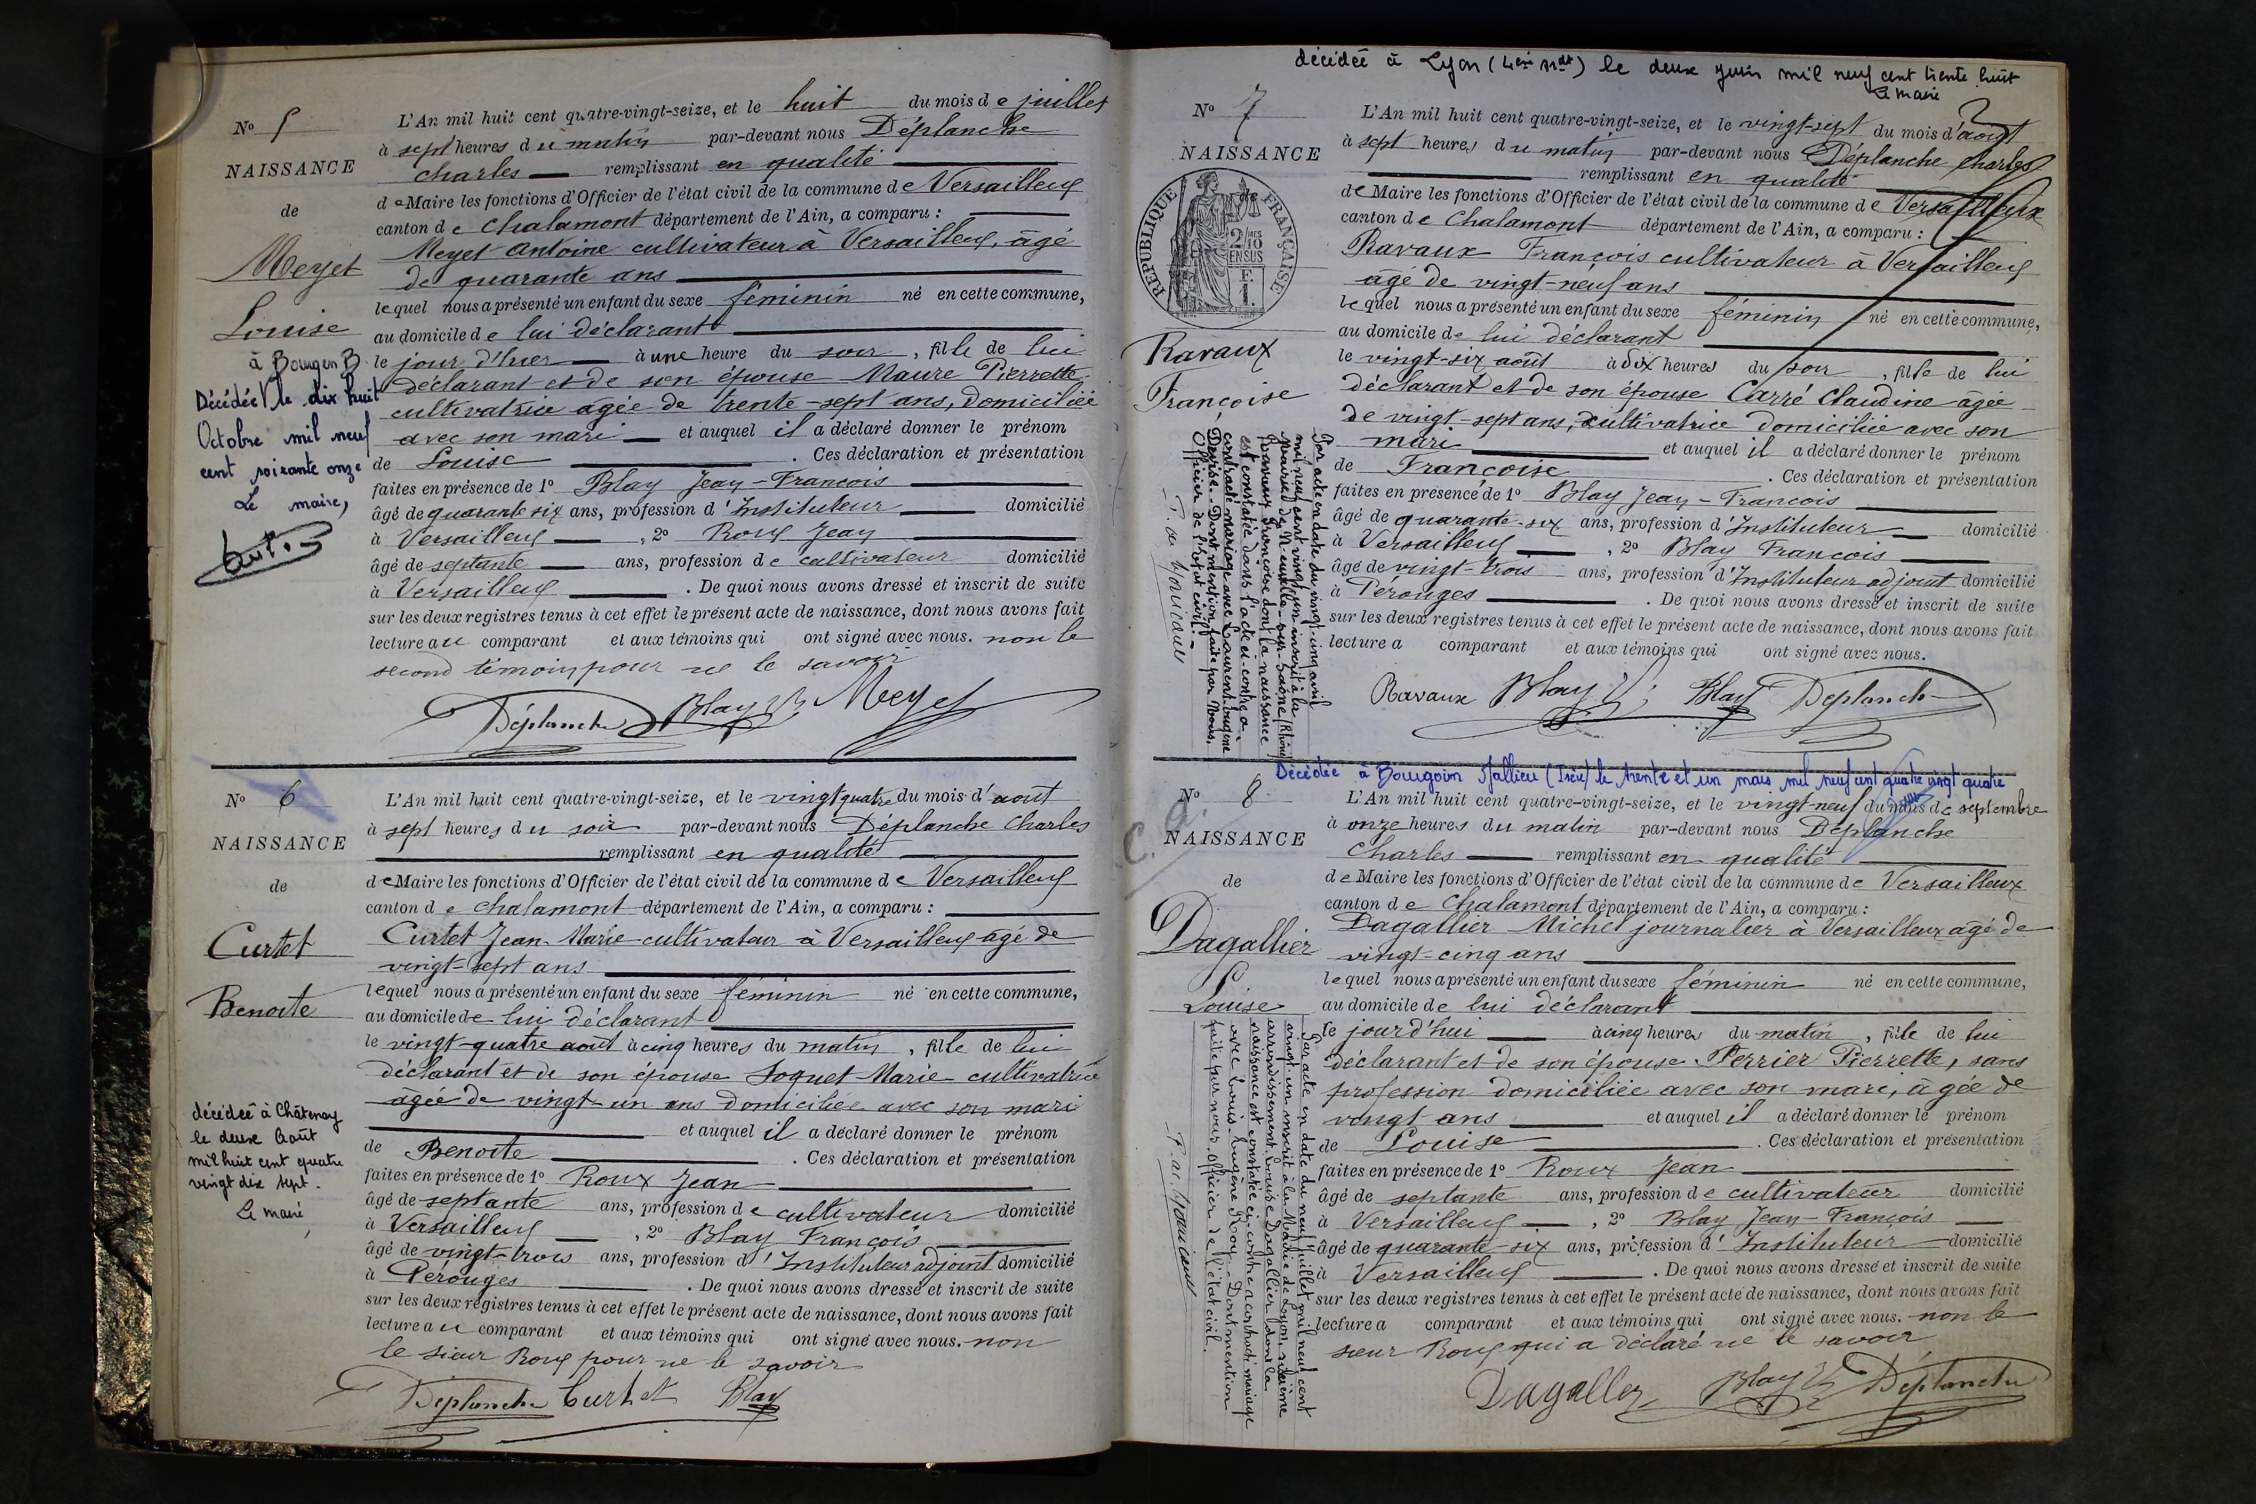 N° 5
NAISSANCE
de
Meyet
Louise
à Bourg en B.
Décédée le dix huit
Octobre mil neuf
cent soixante onze
Le maire,
L'An mil huit cent quatre-vingt-seize, et le huit du mois de juillet
à sept heures du matin par-devant nous Déplanche
Charles remplissant en qualité
de Maire les fonctions d'Officier de l'état civil de la commune de Versailleux
canton de Chalamont département de l'Ain, a comparu :
Meyet Antoine cultivateur à Versailleux, âgé
de quarante ans
lequel nous a présenté un enfant du sexe féminin né en cette commune,
au domicile de lui déclarant
le jour d'hier à une heure du soir, fille de lui
déclarant et de son épouse Maure Pierrette
cultivatrice âgée de trente-sept ans, domiciliée
avec son mari et auquel il a déclaré donner le prénom
de Louise . Ces déclaration et présentation
faites en présence de 1° Blay Jean-François
âgé de quarante six ans, profession d'Instituteur domicilié
à Versailleux , 2° Roux Jean
âgé de septante ans, profession de cultivateur domicilié
à Versailleux . De quoi nous avons dressé et inscrit de suite
sur les deux registres tenus à cet effet le présent acte de naissance, dont nous avons fait
lecture au comparant et aux témoins qui ont signé avec nous. non le
second témoin pour ne le savoir
Déplanche Blay Meyet
N° 6
NAISSANCE
de
Curtet
Benoite
décédée à Châtenay
le deux Août
mil huit cent quatre
vingt dix sept.
Le maire,
L'An mil huit cent quatre-vingt-seize, et le vingt quatre du mois d'août
à sept heures du soir par-devant nous Déplanche Charles
remplissant en qualité
de Maire les fonctions d'Officier de l'état civil de la commune de Versailleux
canton de Chalamont département de l'Ain, a comparu :
Curtet Jean-Marie cultivateur à Versailleux âgé de
vingt-sept ans
lequel nous a présenté un enfant du sexe féminin né en cette commune,
au domicile de lui déclarant
le vingt-quatre août à cinq heures du matin, fille de lui
déclarant et de son épouse Joguet Marie cultivatrice
âgée de vingt-un ans domiciliée avec son mari
et auquel il a déclaré donner le prénom
de Benoite . Ces déclaration et présentation
faites en présence de 1° Roux Jean
âgé de septante ans, profession de cultivateur domicilié
à Versailleux , 2° Blay François
âgé de vingt-trois ans, profession d'Instituteur adjoint domicilié
à Pérouges . De quoi nous avons dressé et inscrit de suite
sur les deux registres tenus à cet effet le présent acte de naissance, dont nous avons fait
lecture au comparant et aux témoins qui ont signé avec nous. non
le sieur Roux pour ne le savoir
Déplanche Curtet Blay
décédée à Lyon (4eme Ardt) le deux juin mil neuf cent trente huit
Le maire
N° 7
NAISSANCE
de
RÉPUBLIQUE FRANÇAISE
2/10 EN SUS
Ravaux
Françoise
Par acte en date du vingt-cinq avril
mil neuf cent vingt un inscrit à la
mairie de Neuville-sur-Saône (Rhône)
Ravaux Françoise dont la naissance
est constatée dans l'acte ci-contre a
contracté mariage avec Laurent Eugène
Devise. Dont mention faite par Nous,
Officier de l'état civil.
L'An mil huit cent quatre-vingt-seize, et le vingt-sept du mois d'août
à sept heures du matin par-devant nous Déplanche Charles
remplissant en qualité
de Maire les fonctions d'Officier de l'état civil de la commune de Versailleux
canton de Chalamont département de l'Ain, a comparu :
Ravaux François cultivateur à Versailleux
âgé de vingt-neuf ans
lequel nous a présenté un enfant du sexe féminin né en cette commune,
au domicile de lui déclarant
le vingt-six août à dix heures du soir, fille de lui
déclarant et de son épouse Carré Claudine âgée
de vingt-sept ans, cultivatrice domiciliée avec son
mari et auquel il a déclaré donner le prénom
de Françoise . Ces déclaration et présentation
faites en présence de 1° Blay Jean-François
âgé de quarante-six ans, profession d'Instituteur domicilié
à Versailleux , 2° Blay François
âgé de vingt-trois ans, profession d'Instituteur adjoint domicilié
à Pérouges . De quoi nous avons dressé et inscrit de suite
sur les deux registres tenus à cet effet le présent acte de naissance, dont nous avons fait
lecture a comparant et aux témoins qui ont signé avec nous.
Ravaux Blay Blay Déplanche
Décédée à Bourgoin Jallieu (Isère) le trente et un mars mil neuf cent quatre vingt quatre
N° 8
NAISSANCE
de
Dagallier
Louise
Par acte en date du neuf juillet mil neuf cent
vingt-un inscrit à la Mairie de Lyon,
arrondissement Louise Dagallier dont la
naissance est constatée ci-contre a contracté mariage
avec Louis-Eugène Roy. Dont mention
faite par nous Officier de l'état civil.
L'An mil huit cent quatre-vingt-seize, et le vingt-neuf du mois de septembre
à onze heures du matin par-devant nous Déplanche
Charles remplissant en qualité
de Maire les fonctions d'Officier de l'état civil de la commune de Versailleux
canton de Chalamont département de l'Ain, a comparu :
Dagallier Michel journalier à Versailleux âgé de
vingt-cinq ans
lequel nous a présenté un enfant du sexe féminin né en cette commune,
au domicile de lui déclarant
le jourd'hui à cinq heures du matin, fille de lui
déclarant et de son épouse Perrier Pierrette, sans
profession domiciliée avec son mari, âgée de
vingt ans et auquel il a déclaré donner le prénom
de Louise . Ces déclaration et présentation
faites en présence de 1° Roux Jean
âgé de septante ans, profession de cultivateur domicilié
à Versailleux , 2° Blay Jean-François
âgé de quarante-six ans, profession d'Instituteur domicilié
à Versailleux . De quoi nous avons dressé et inscrit de suite
sur les deux registres tenus à cet effet le présent acte de naissance, dont nous avons fait
lecture a comparant et aux témoins qui ont signé avec nous. non le
sieur Roux qui a déclaré ne le savoir
Dagallier Blay Déplanche